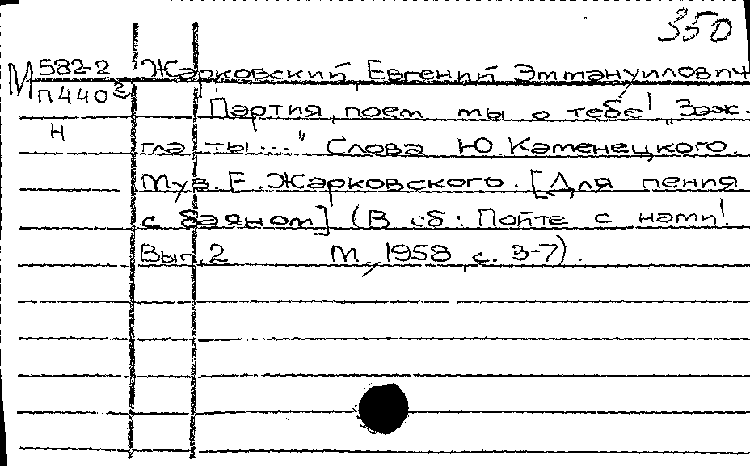 350
М 582-2 Жарковский, Евгений Эммануилович
П440² Партия, поем мы о тебе! "Заж-
Н
гла ты..." Слова Ю. Каменецкого.
Муз. Е. Жарковского. [Для пения
с баяном] (В сб: Пойте с нами!
Вып. 2 М., 1958, с. 3-7).